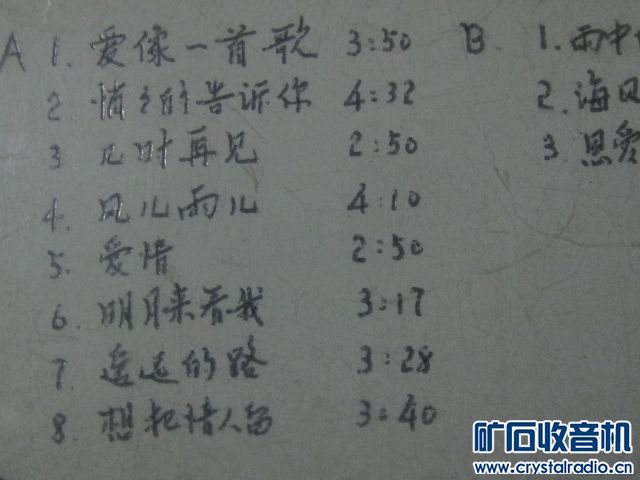 A 1. 爱像一首歌 3:50 B. 1. 雨中
2. 悄々的告诉你 4:32 2. 海风
3 几时再见 2:50 3 恩爱
4. 风儿雨儿 4:10
5. 爱情 2:50
6. 明月来看我 3:17
7. 遥远的路 3:28
8. 想把情人留 3:40
矿石收音机
www.crystalradio.cn